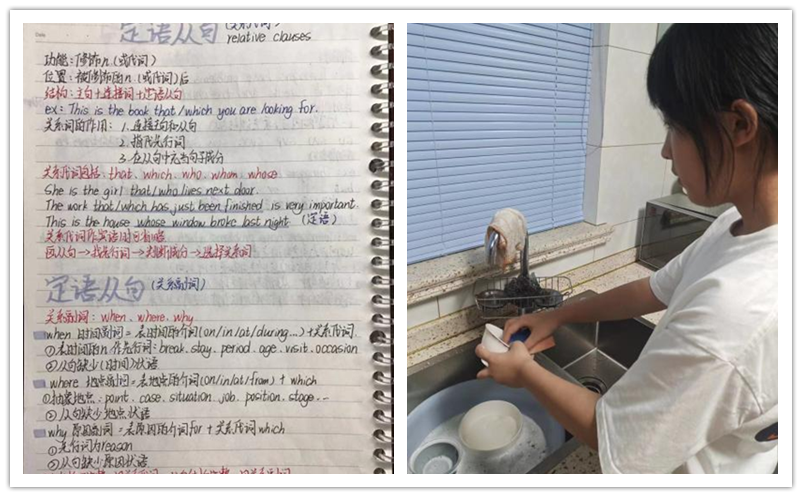 定语从句 (关系代词)
relative clauses
功能：修饰n.(或代词)
位置：被修饰的n.(或代词)后
结构：主句+连接词+定语从句
ex: This is the book that/which you are looking for.
关系词的作用：1.连接主句和从句
2.指代先行词
3.在从句中充当句子成分
关系代词包括：that、which、who、whom、whose
She is the girl that/who lives next door.
The work that/which has just been finished is very important.
This is the house whose window broke last night. (定语)
关系代词作宾语时可省略
找从句→找先行词→判断成分→选择关系词
定语从句 (关系副词)
关系副词：when、where、why
when 时间副词=表时间的介词(on/in/at/during...)+关系代词
①表时间的n.作先行词：break、stay、period、age、visit、occasion
②从句缺少(时间)状语
where 地点副词=表地点的介词(on/in/at/from)+which
①抽象地点：point、case、situation、job、position、stage...
②从句缺少地点状语
why 原因副词=表原因的介词for+关系代词which
①先行词为reason
②从句缺少原因状语